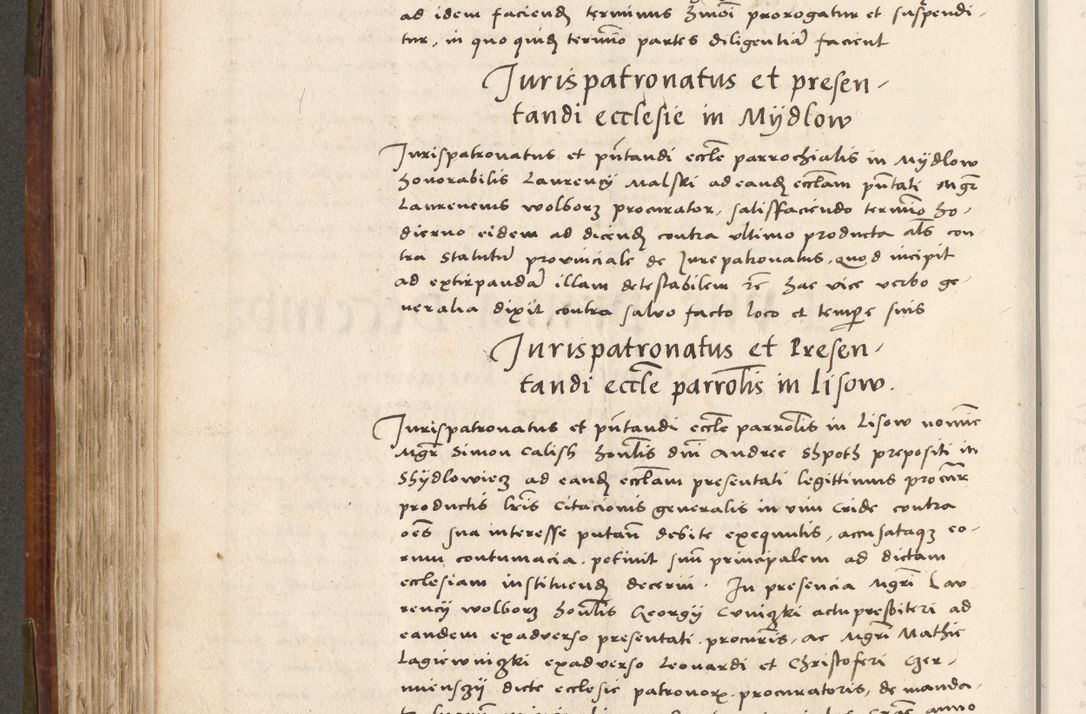 ad idem faciend terminus hmoi prorogatur et suspendi-
tur, in quo quid termino partes diligentia facient
Jurispatronatus et presen-
tandi ecclesie in Mÿdlow
Jurispatronatus et pntandi eccle parrochialis in Mÿdlow
honorabilis Laurency Malski ad eand ecclam pntati Mgr
Laurencius wolborz procurator, satisfaciendo termino ho-
dierno eidem ad dicend contra ultimo producta als con
tra statutu provinciale de Jurepatronatus, quod incipit
ad extirpanda illam detestabilem rc hac vice verbo ge-
neralia dixit contra salvo facto loco et tempore suis
Jurispatronatus et Presen-
tandi eccle parrolis in Lisow.
Jurispatronatus et pntandi eccle parrolis in Lisow nomine
Mgr Simon Calish honlis dni Andree Shpoth prepositi in
Shÿdlowiecz ad eand ecclam presentati legittimus procur
productis lris Citacionis generalis in vim Cride contra
oes sua interesse putan debite exequutis, accusataqz eo-
rum contumacia, petivit sun principalem ad dictam
ecclesiam instituend decerni. In presencia Mgri Lau-
rencÿ wolborz honlis Georgÿ Cuniczki actu presbiteri ad
eandem exadverso presentati procuris, ac Mgri Mathie
Lagiewniczki exadverso Leonardi et Christoferi Czer-
nienszÿ dicte ecclesie patronorx procuratoris, de manda-